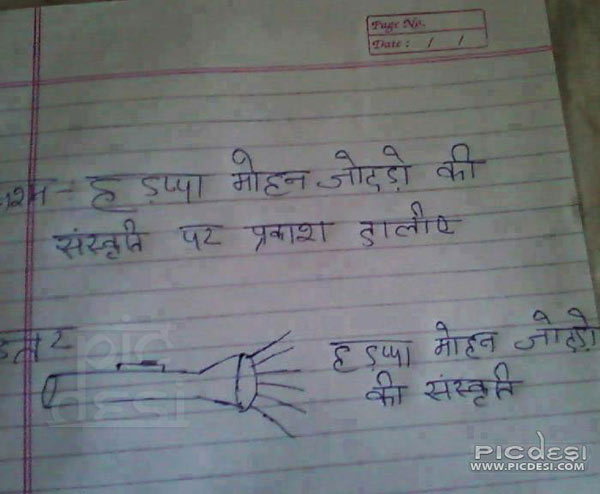 Page No.
Date: / /
प्रश्न - हडप्पा मोहन जोदड़ो की
संस्कृति पर प्रकाश डालीए
उत्तर
हडप्पा मोहन जोदड़ो
की संस्कृति
pic desi
PICDESI
WWW.PICDESI.COM